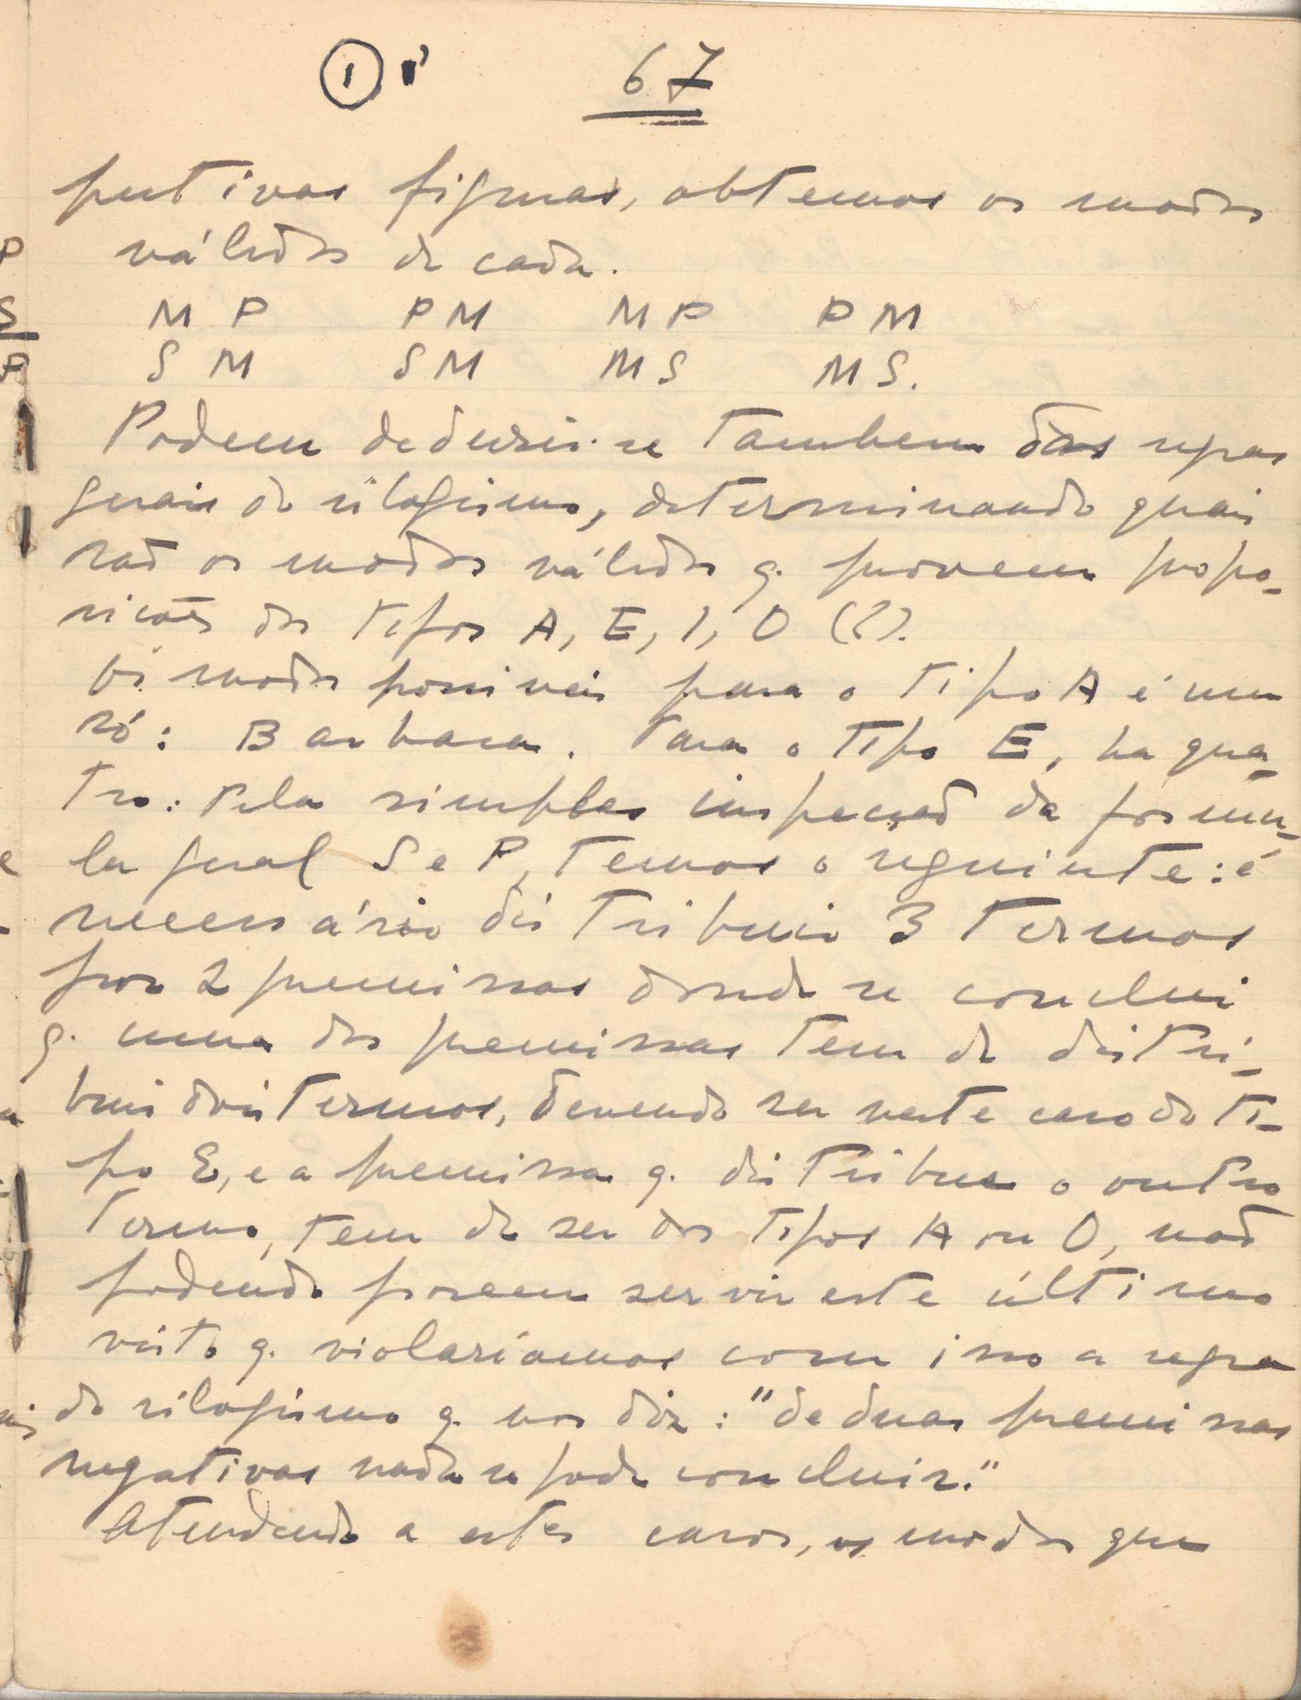 ① 67
pectivas figuras, obtemos os modos
válidos de cada.
M P P M M P P M
S M S M M S M S.
Podem deduzir-se tambem das regras
gerais do silogismo, determinando quais
são os modos válidos q. provem propo-
sições dos tipos A, E, I, O (?).
Os modos possiveis para o tipo A é um
só: Barbara. Para o tipo E, ha qua-
tro: Pela simples inspecção da fórmu-
la geral S e P, temos o seguinte: é
necessário distribuir 3 termos
por 2 premissas donde se conclui
q. uma das premissas tem de distri-
buir dois termos, devendo ser neste caso do ti-
po E, e a premissa q. distribue o outro
termo, tem de ser dos tipos A ou O, não
podendo porem servir este último
visto q. violaríamos com isso a regra
do silogismo q. nos diz: "de duas premissas
negativas nada se pode concluir."
Atendendo a estes casos, os modos que